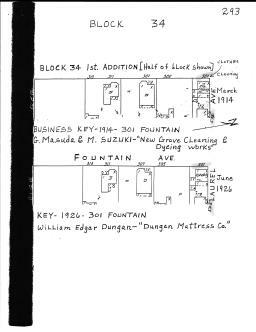 293
BLOCK 34
BLOCK 34 1st. ADDITION [Half of block shown]
Cleaning
AVE
March
1914
BUSINESS KEY-1914- 301 FOUNTAIN
G. Masuda & M. SUZUKI-"New Grove Cleaning &
Dyeing Works"
FOUNTAIN AVE.
LAUREL
June
1926
KEY-1926-301 FOUNTAIN
William Edgar Dungan-"Dungan Mattress Co."